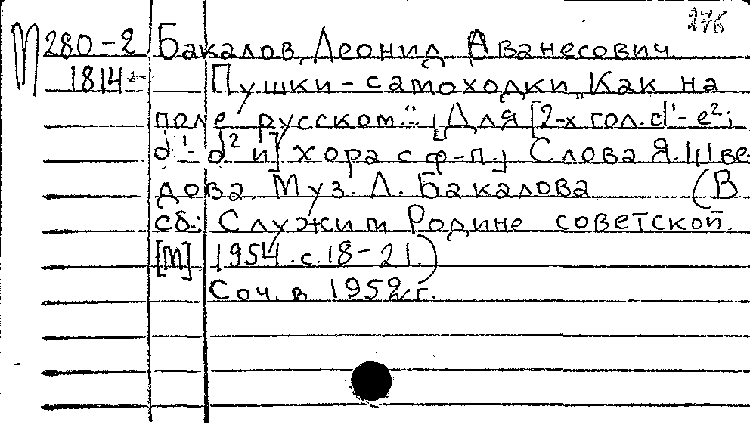 276
П 280-2 Бакалов, Леонид Аванесович
1814 Пушки-самоходки „Как на
поле русском..." [Для [2-х гол. d¹-e²;
d¹-d² и] хора с ф-п.] Слова Я. Шве
дова. Муз. Л. Бакалова (В
сб.: Служим Родине советской.
[М] 1954. с. 18-21.)
Соч. в 1952 г.